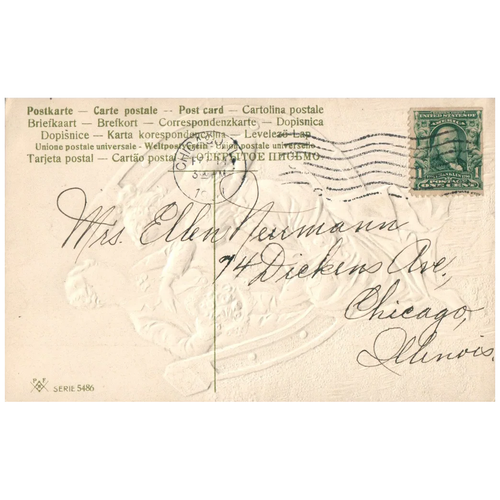 Postkarte – Carte postale – Post card – Cartolina postale
Briefkaart – Brefkort – Correspondenzkarte – Dopisnica
Dopišnice – Karta korespondencyjna – Levelező-Lap
Unione postale universale - Weltpostverein - Union postale universelle
Tarjeta postal – Cartão postal – ОТКРЫТОЕ ПИСЬМО
CHICAGO, ILL.
UNITED STATES OF
POSTAGE
1 ONE CENT 1
Mrs. Ellen Neumann
74 Dickens Ave,
Chicago,
Illinois.
P F
SERIE 5486